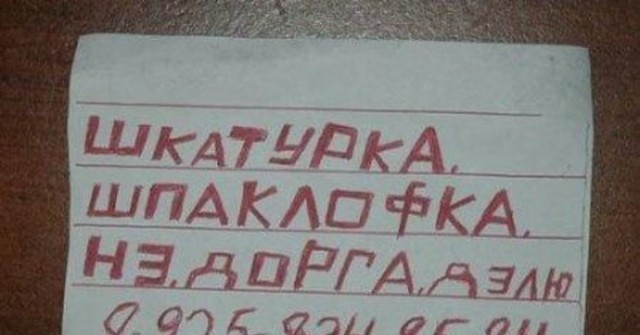 ШКАТУРКА.
ШПАКЛОФКА.
НЭ.ДОРГА.ДЭЛЮ